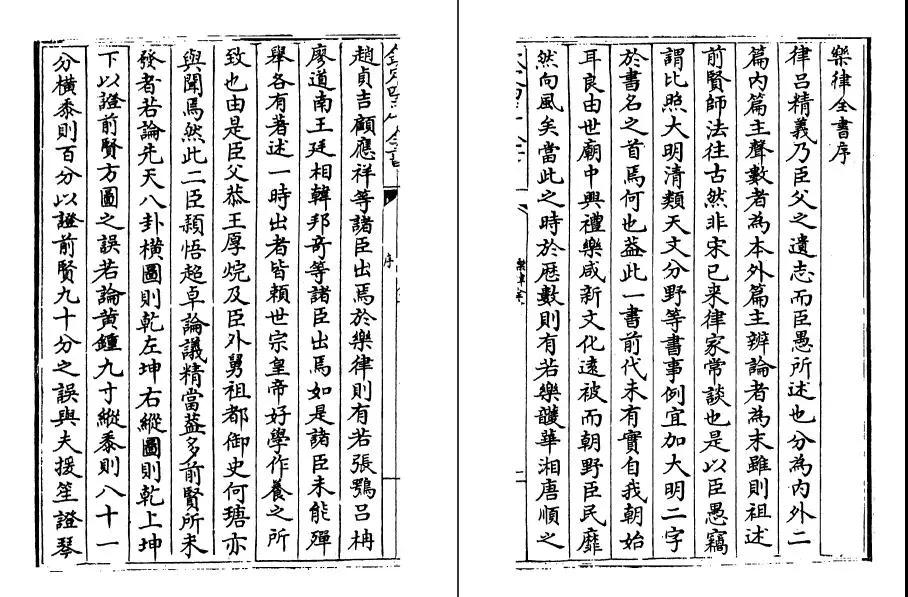 樂律全書序
律呂精義乃臣父之遺志而臣愚所述也分為内外二
篇内篇主聲數者為本外篇主辨論者為末雖則祖述
前賢師法往古然非宋已来律家常談也是以臣愚竊
謂比照大明清類天文分野等書事例宜加大明二字
於書名之首焉何也葢此一書前代未有實自我朝始
耳良由世廟中興禮樂咸新文化逺被而朝野臣民靡
然向風矣當此之時於厯數則有若樂頀華湘唐順之
樂律全書
序
趙貞吉顧應祥等諸臣出焉於樂律則有若張鶚吕柟
廖道南王廷相韓邦竒等諸臣出焉如是諸臣未能殫
舉各有著述一時出者皆頼世宗皇帝好學作養之所
致也由是臣父恭王厚烷及臣外舅祖都御史何瑭亦
與聞焉然此二臣頴悟超卓論議精當葢多前賢所未
發者若論先天八卦横圖則乾左坤右縱圖則乾上坤
下以證前賢方圖之誤若論黄鍾九寸縱黍則八十一
分横黍則百分以證前賢九十分之誤與夫援笙證琴